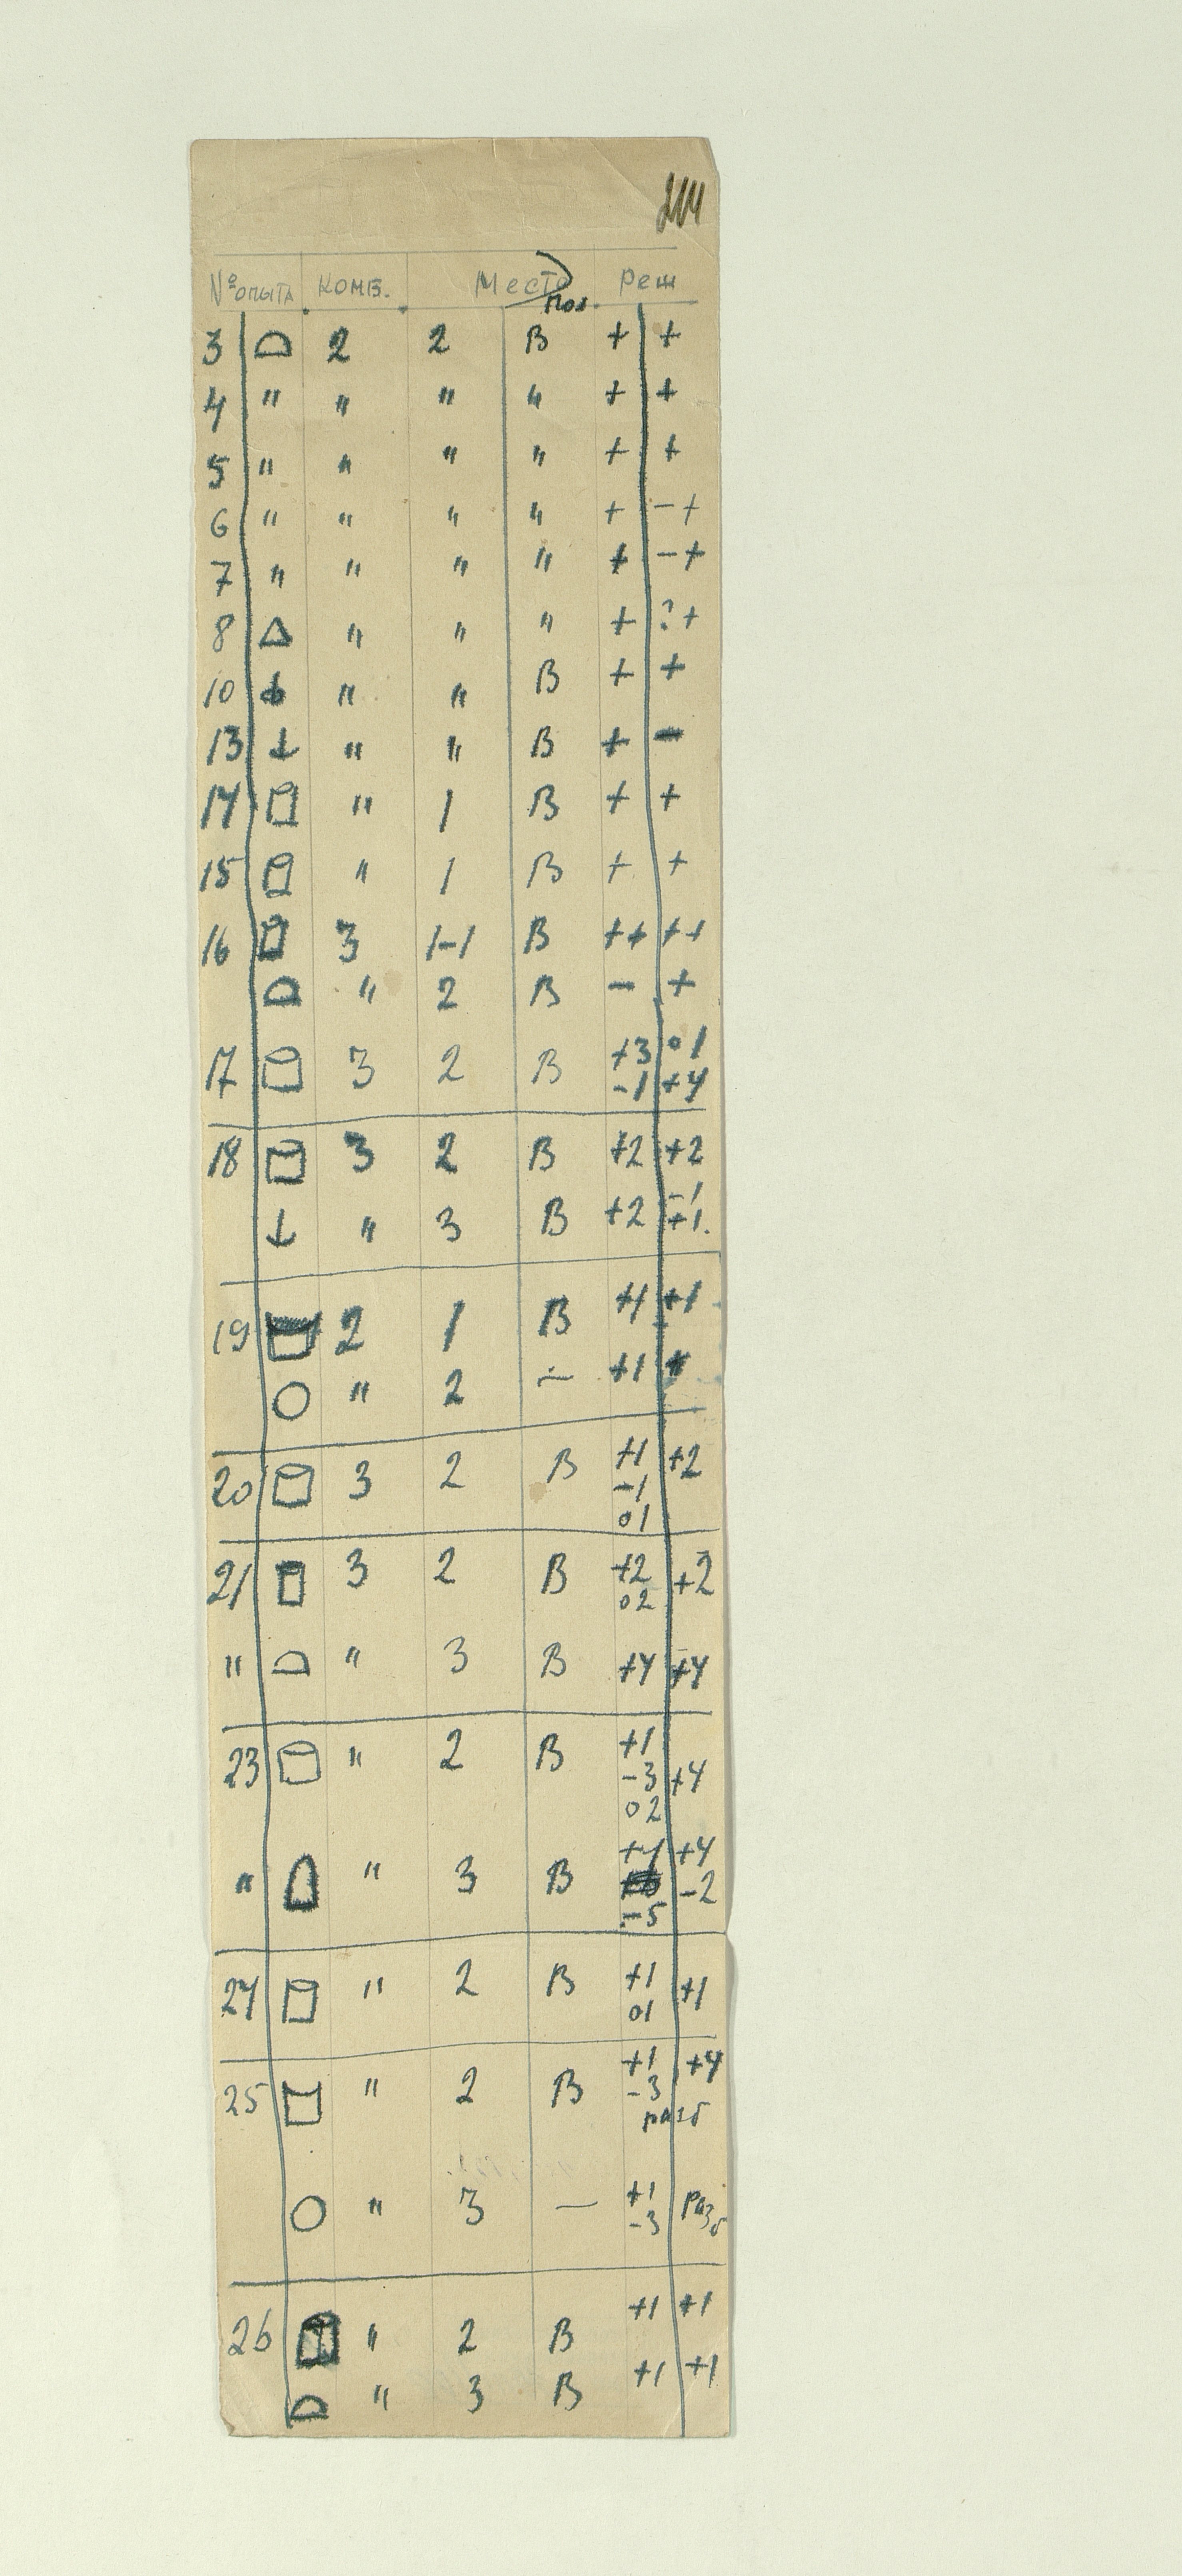 214
№ опыта Комб. Место Реш
Пол.
3 2 2 В + +
4 " " " " + +
5 " " " " + +
6 " " " " + - +
7 " " " " + - +
8 " " " + ? +
10 " " В + +
13 " " В + -
14 " 1 В + +
15 " 1 В + +
16 3 1-1 В ++ ++
" 2 В - +
17 3 2 В +3 01
-1 +4
18 3 2 В +2 +2
" 3 В +2 -1
+1.
19 2 1 В +1 +1
" 2 — +1
20 3 2 В +1 +2
-1
01
21 3 2 В +2 +2
02
" " 3 В +4 +4
23 " 2 В +1
-3 +4
02
" " 3 В +4 +4
-2
-5
24 " 2 В +1 +1
01
25 " 2 В +1 +4
-3
разб
" 3 — +1 разб
-3
26 " 2 В +1 +1
" 3 В +1 +1